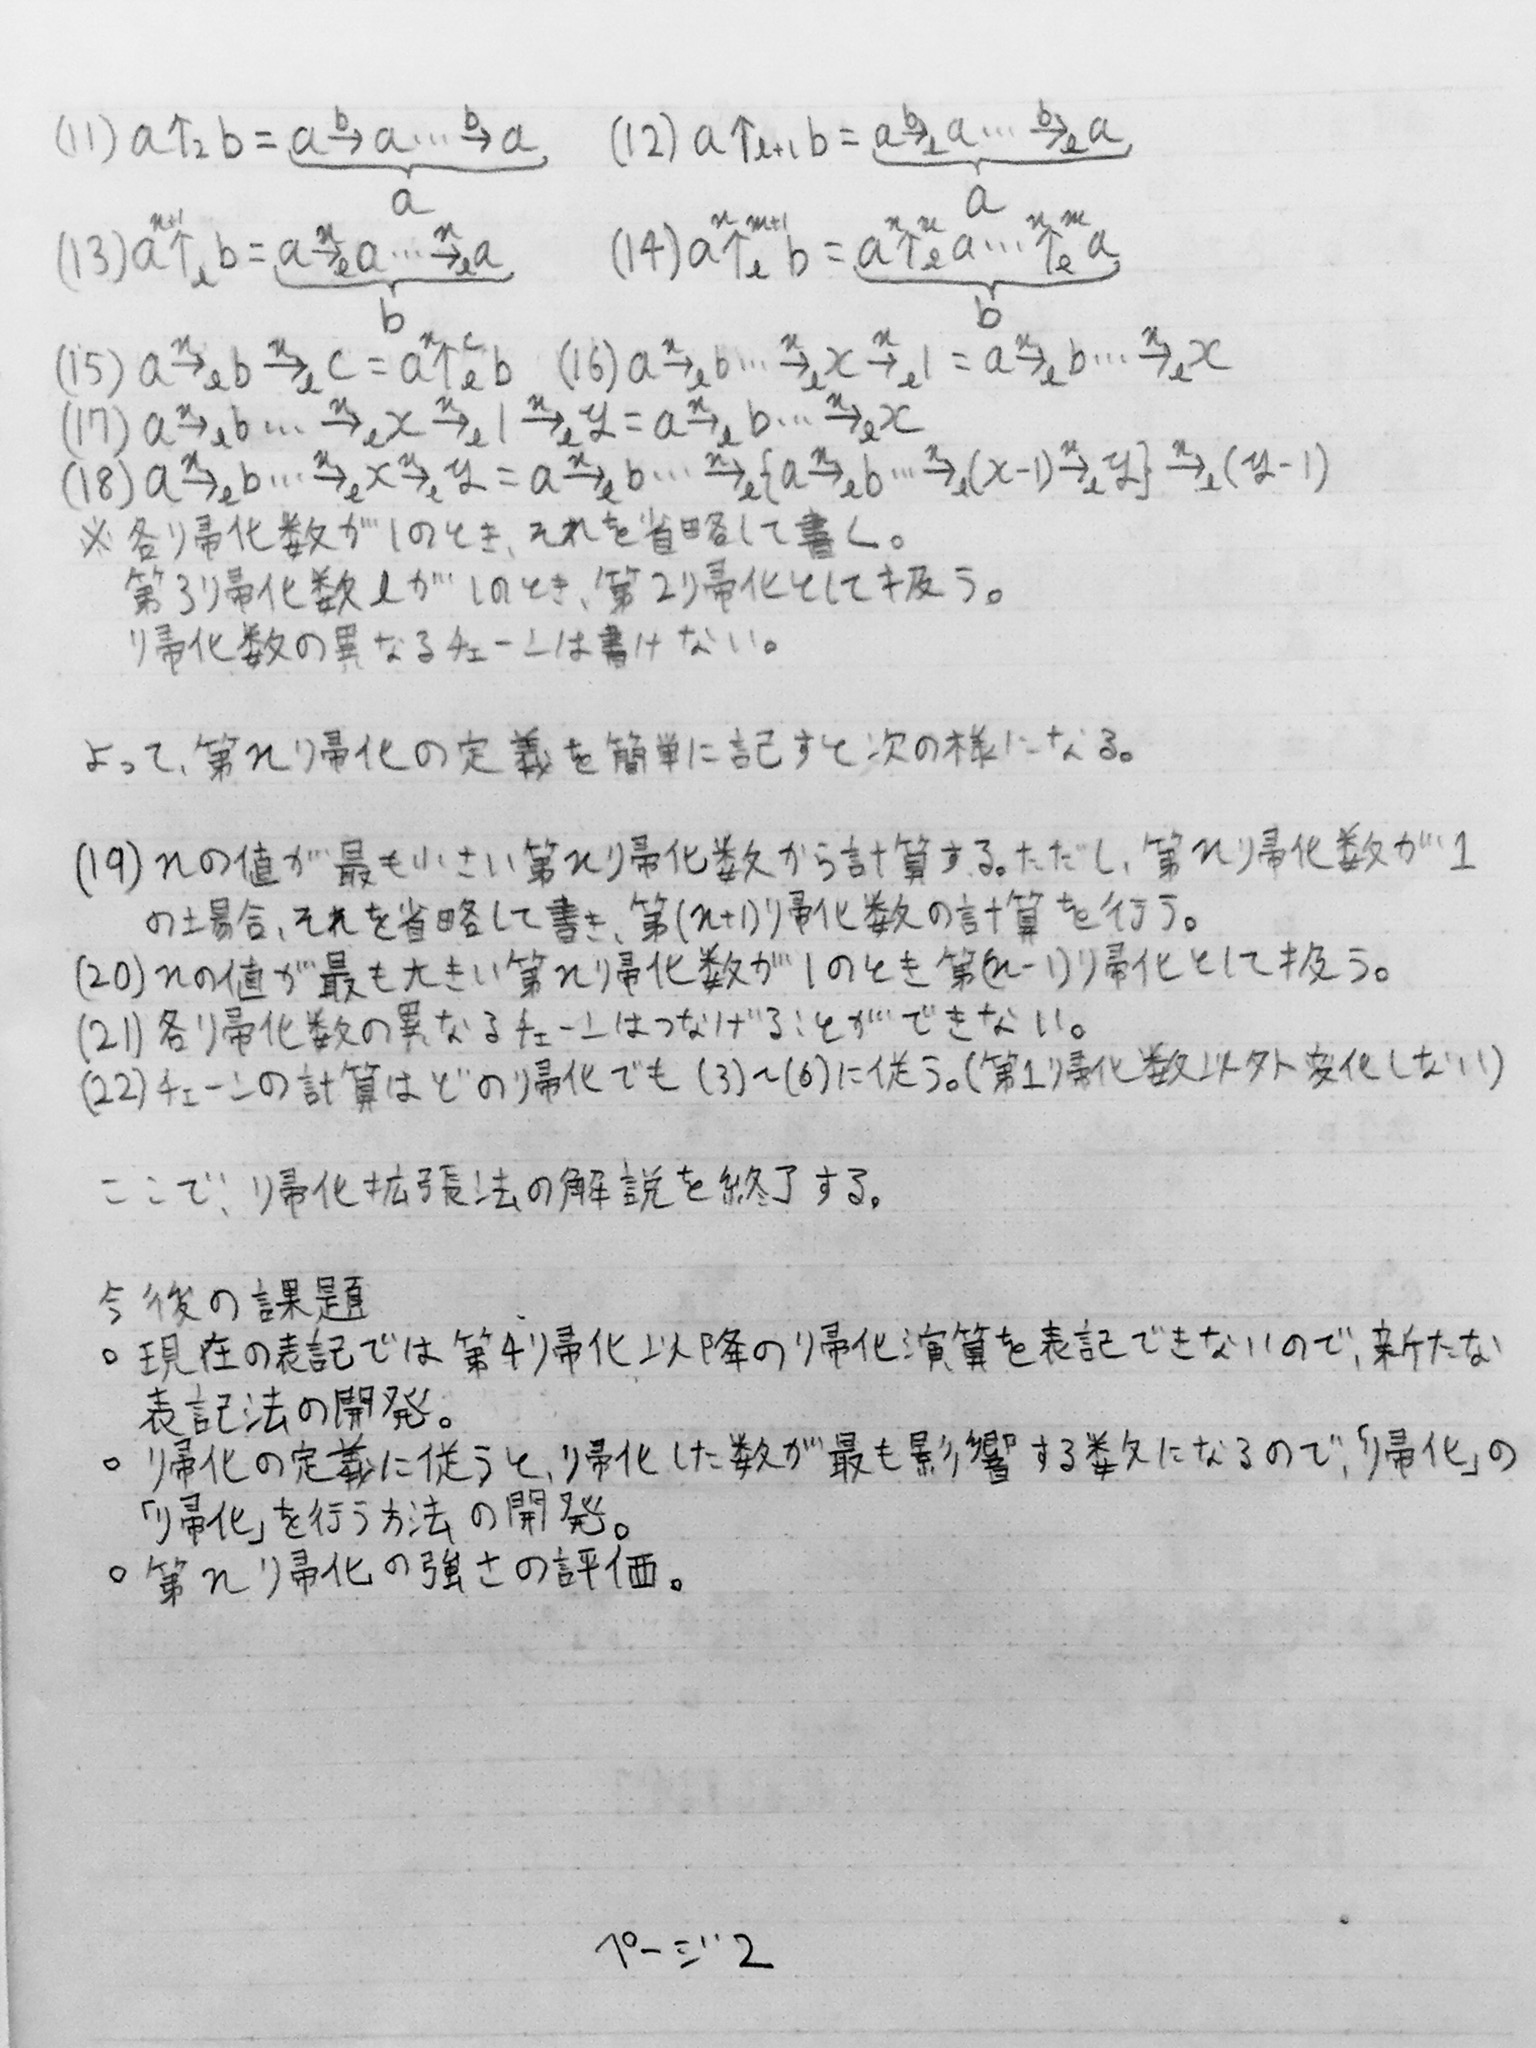 (11) a↑₂b = a→^b a … →^b a (a)　(12) a↑_{l+1} b = a→^b_l a … →^b_l a (a)
(13) a ^{n+1}↑_l b = a→^n_l a … →^n_l a (b)　(14) a ^n↑^{m+1}_l b = a ^n↑^m_l a … ^n↑^m_l a (b)
(15) a→^n_l b→^n_l c = a ^n↑^c_l b　(16) a→^n_l b … →^n_l x→^n_l 1 = a→^n_l b … →^n_l x
(17) a→^n_l b … →^n_l x→^n_l 1→^n_l y = a→^n_l b … →^n_l x
(18) a→^n_l b … →^n_l x→^n_l y = a→^n_l b … →^n_l {a→^n_l b … →^n_l (x-1)→^n_l y}→^n_l (y-1)
※各リ帰化数が1のとき、それを省略して書く。
第3リ帰化数lが1のとき、第2リ帰化として扱う。
リ帰化数の異なるチェーンは書けない。
よって、第nリ帰化の定義を簡単に記すと次の様になる。
(19) nの値が最も小さい第nリ帰化数から計算する。ただし、第nリ帰化数が1
の場合、それを省略して書き、第(n+1)リ帰化数の計算を行う。
(20) nの値が最も大きい第nリ帰化数が1のとき第(n-1)リ帰化として扱う。
(21) 各リ帰化数の異なるチェーンはつなげることができない。
(22) チェーンの計算はどのリ帰化でも(3)～(6)に従う。(第1リ帰化数以外変化しない)
ここで、リ帰化拡張法の解説を終了する。
今後の課題
○ 現在の表記では第4リ帰化以降のリ帰化演算を表記できないので、新たな
表記法の開発。
○ リ帰化の定義に従うと、リ帰化した数が最も影響する数になるので、「リ帰化」の
「リ帰化」を行う方法の開発。
○ 第nリ帰化の強さの評価。
ページ2